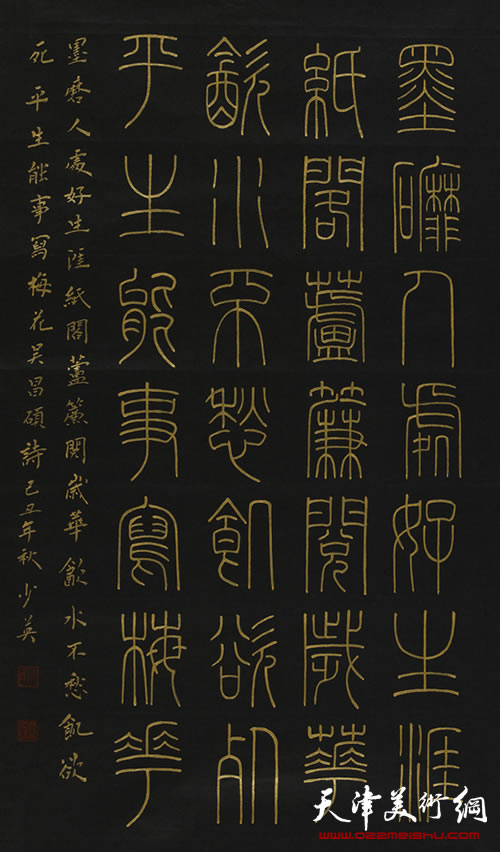 墨磨人處好生涯
紙閣蘆簾閱歲華
飲水不愁飢欲死
平生能事寫梅花
墨磨人處好生涯紙閣蘆簾閱歲華飲水不愁飢欲
死平生能事寫梅花吴昌碩詩己丑年秋少英
天津美術網
www.022meishu.com